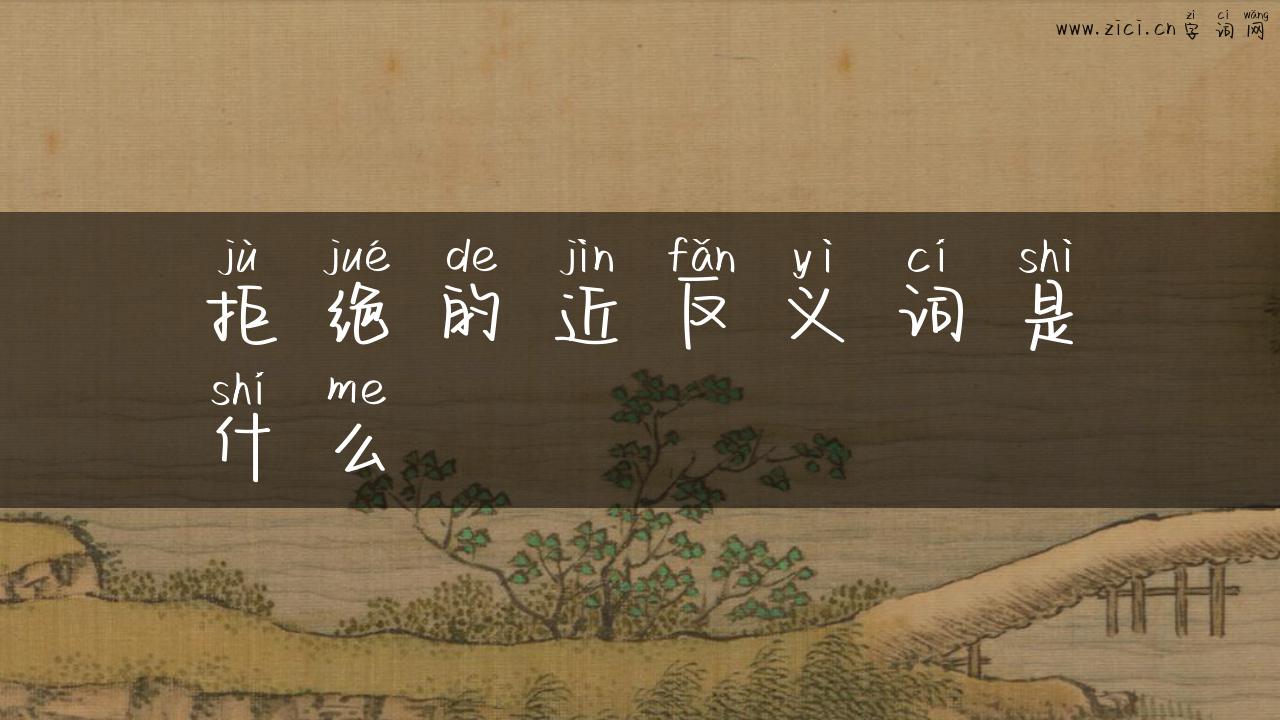 zì cí wǎng
www.zici.cn 字 词 网
jù jué de jìn fǎn yì cí shì
拒 绝 的 近 反 义 词 是
shí me
什 么